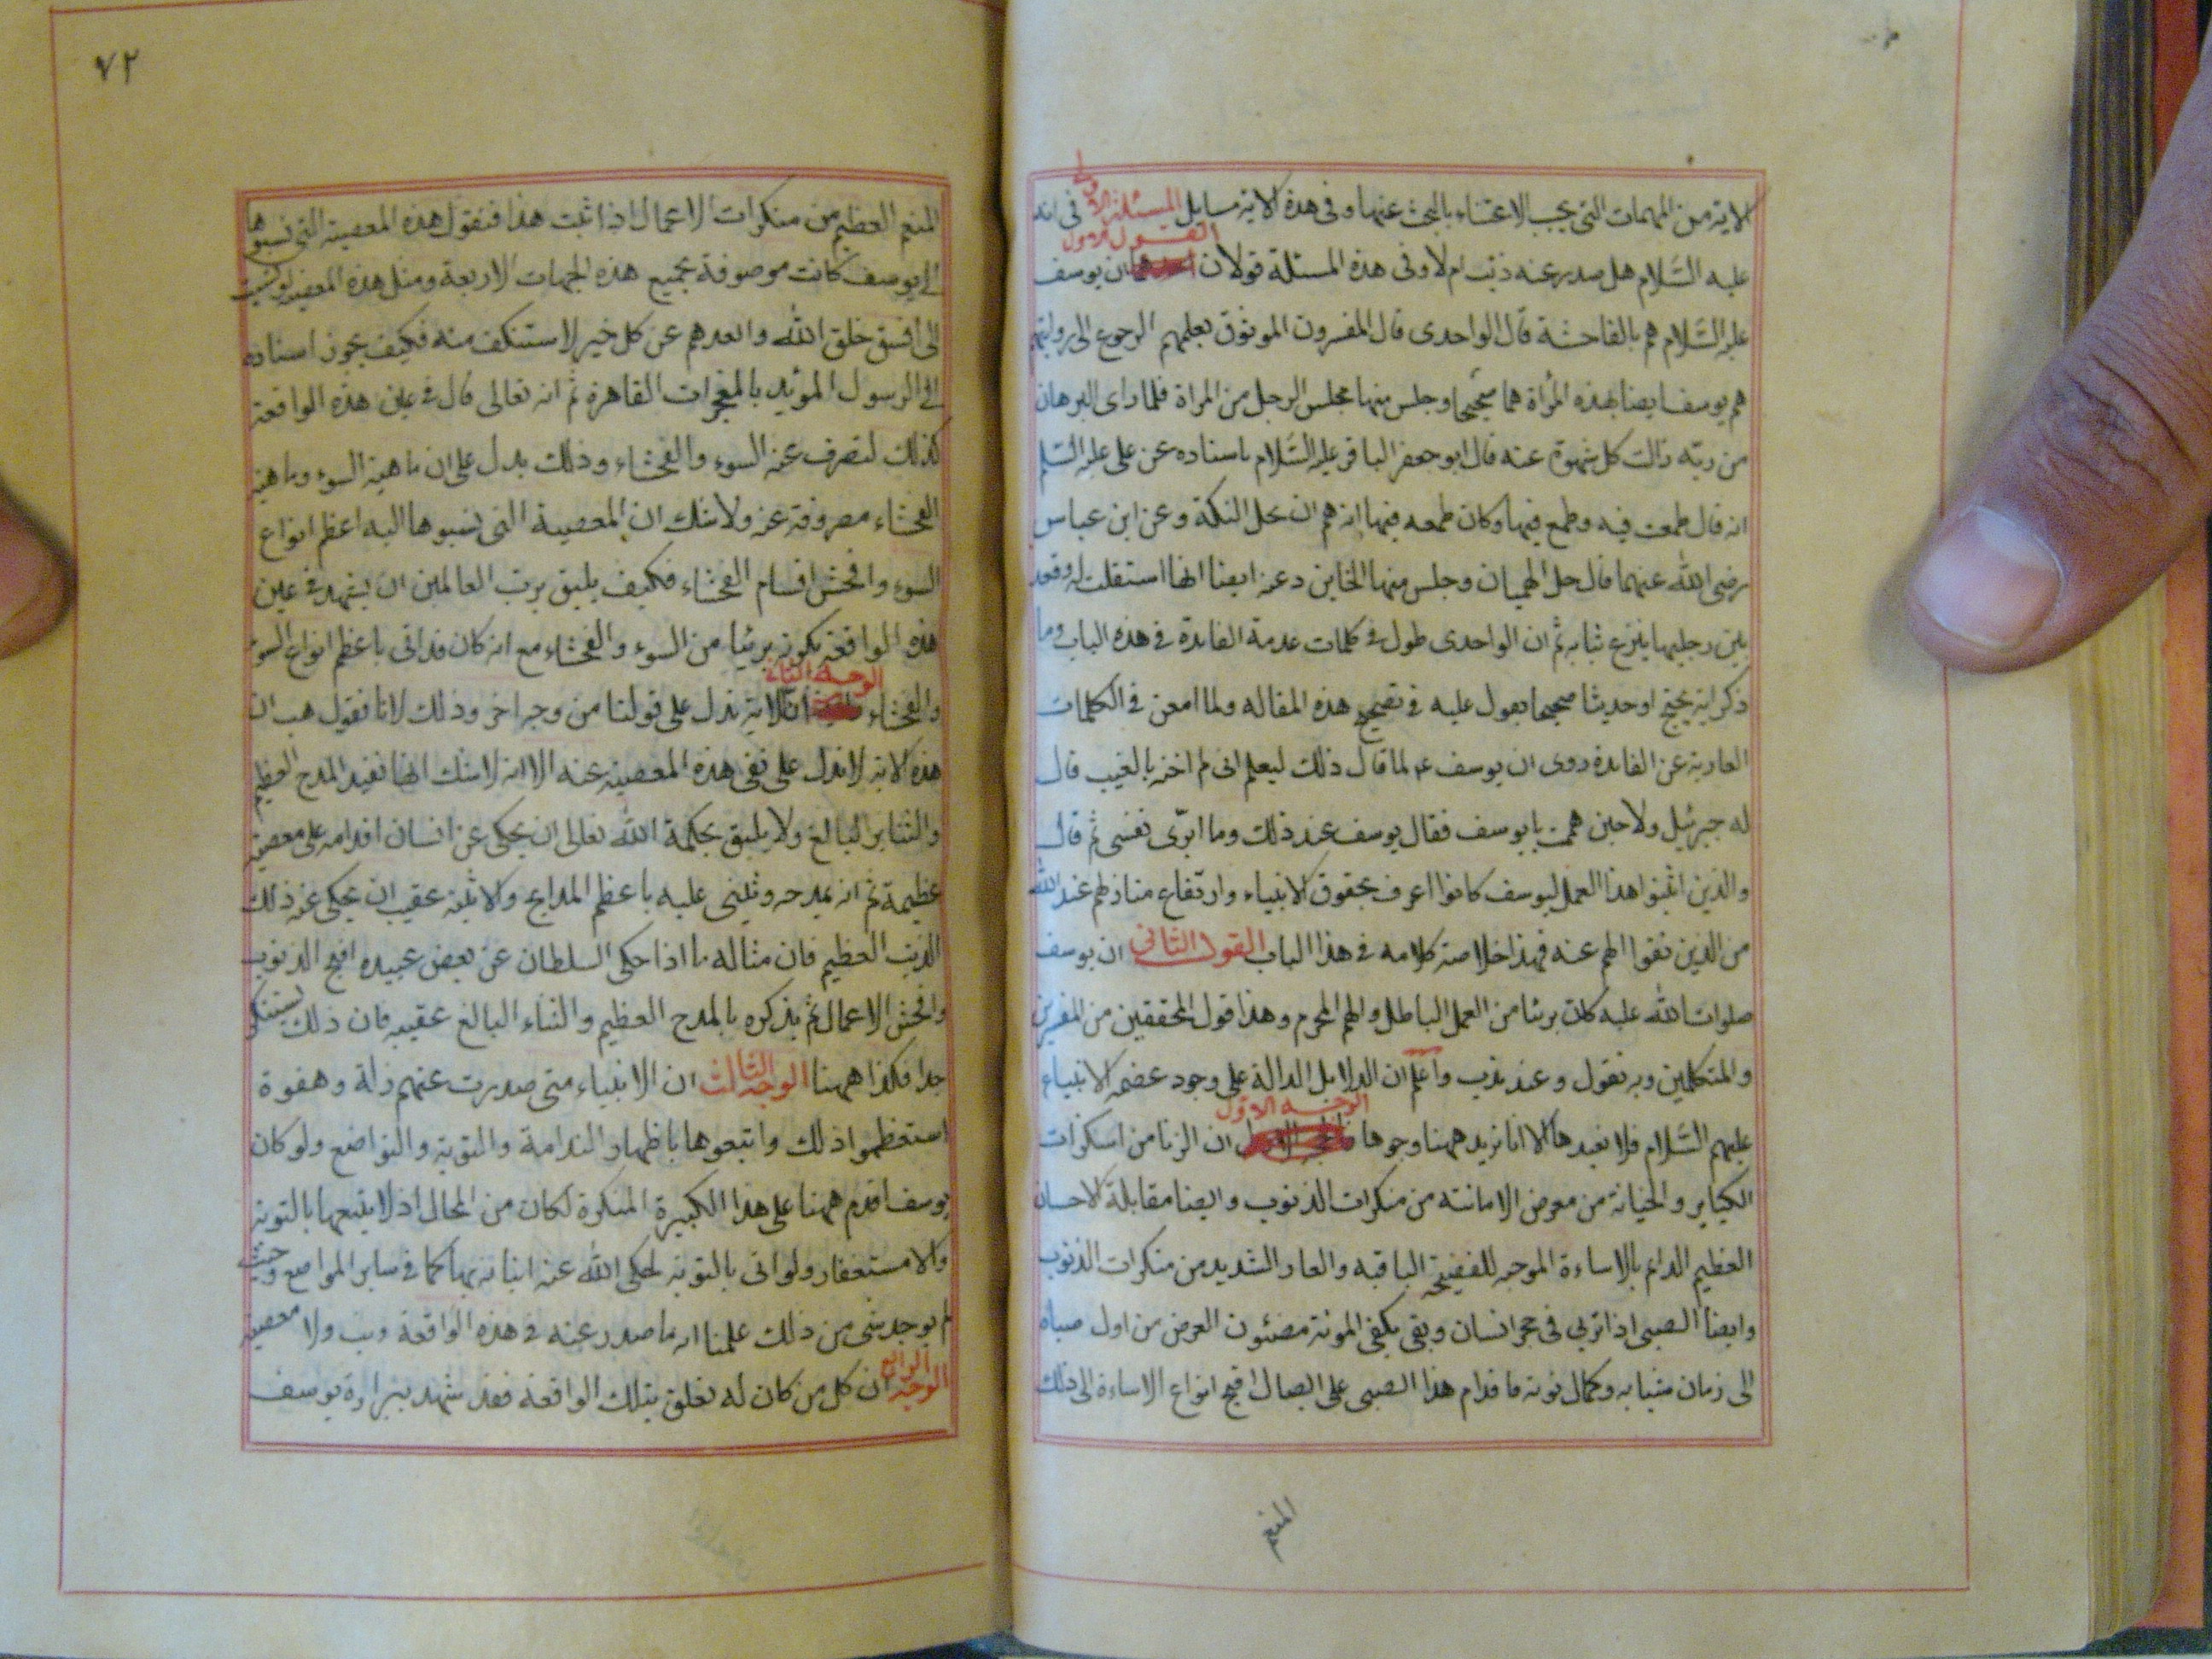 الاية من المهمات التى يجب الاعتناء بالبحث عنها وفى هذة الاية مسايل المسئلة الاولى فى انه
عليه السَّلام هل صدر عنه ذنب ام لا وفى هذة المسئلة قولان القول الاول ان يوسف
عليه السَّلام هم بالفاحشة قال الواحدى قال المفسرون الموثوق بعلمهم الرجوع الى روايتهم
هم يوسف ايضا بهذه المرأة هما صحيحا وجلس منها مجلس الرجل من المراة فلما راى البرهان
من ربّه زالت كل شهوة عنه قال ابو جعفر الباقر عليه السَّلام باسناده عن على عليه السّلم
انه قال طمعت فيه وطمع فيها وكان طمعه فيها انه هم ان يحل التكة وعن ابن عباس
رضى الله عنهما قال حل الهميان وجلس منها الخاين وعنه ايضا انها استقلت له وقعد
بين رجليها ينزع ثيابه ثم ان الواحدى طول فى كلمات عدمة الفايدة فى هذه الباب وما
ذكر اية يحتج او حديثا صحيحا يعول عليه فى تصحيح هذه المقاله ولما امعن فى الكلمات
العارية عن الفايدة روى ان يوسف ع لما قال ذلك ليعلم انى لم اخنه بالغيب قال
له جبرئيل ولا حين هممت يا يوسف فقال يوسف عند ذلك وما ابرّى نفسى ثم قال
والذين اثبتوا هذا العمل ليوسف كانوا اعرف بحقوق الانبياء وارتفاع منازلهم عند الله
من الذين نفوا الهم عنه فهذا خلاصة كلامه فى هذا الباب القول الثانى ان يوسف
صلوات الله عليه كان بريئا من العمل الباطل والهم المحرم وهذا قول المحققين من المفسرين
والمتكلمين وبه نقول وعنه نذب واعلم ان الدلايل الدالة على وجود عصمة الانبياء
عليهم السَّلام فلا نعيدها الا انا نزيد ههنا وجوها الوجه الاول ان الزنا من اسنكرات
الكباير والخيانة من معرض الامانته من منكرات الذنوب وايضا مقابلة الاحسان
العظيم الدايم بالاساءة الموجبة للفضيحة الباقيه والعار الشديد من منكرات الذنوب
وايضا الصبى اذا تربى فى حجر انسان وبقى بكفى المونة مصئون العرض من اول صباه
الى زمان شبابه وكمال قوته فاقدام هذا الصبى على ايصال اقبح انواع الاساءة الى ذلك
المنعم
٧٢
المنعم العظيم من منكرات الاعمال اذا ثبت هذا فنقول هذه المعصية التى نسبوها
الى يوسف كانت موصوفة بجميع هذه الجهات الاربعة ومثل هذه المعصية لو نسبت
الى افسق خلق الله وابعدهم عن كل خير لاستنكف منه فكيف يجوز اسناده
الى الرسول المؤيد بالمعجزات القاهرة ثم انه تعالى قال فى عين هذه الواقعة
كذلك لنصرف عنه السوء والفحشاء وذلك يدل على ان ماهية السوء وماهية
الفحشاء مصروفة عنه ولا شك ان المعصية التى نسبوها اليه اعظم انواع
السوء وافحش اقسام الفحشاء فكيف يليق برب العالمين ان يشهد فى عين
هذه الواقعة بكونه بريئا من السوء والفحشاء مع انه كان قد اتى باعظم انواع السوء
والفحشاء الوجه الثانى ان الاية تدل على قولنا من وجه اخر وذلك لانا نقول هب ان
هذه الاية لا تدل على نفى هذة المعصية عنه الا انه لا شك انها تفيد المدح العظيم
والثناء البالغ ولا يليق بحكمة الله تعالى ان يحكى عن انسان اقدامه على معصية
عظيمة ثم انه يمدحه ويثنى عليه باعظم المدايح والاثنية عقيب ان يحكى عنه ذلك
الذنب العظيم فان مثاله ما اذا حكى السلطان عن بعض عبيده اقبح الذنوب
وافحش الاعمال ثم يذكره بالمدح العظيم والثناء البالغ عقيبه فان ذلك يستنكر
جدا فكذا ههنا الوجه الثالث ان الانبياء متى صدرت عنهم زلة وهفوة
استعظموا ذلك واتبعوها باظهار الندامة والتوبة والتواضع ولو كان
يوسف اقدم ههنا على هذا الكبيرة المنكرة لكان من المحال اذ لا يتبعها بالتوبة
والاستغفار ولو اتى بالتوبة لحكى الله عنه اتيانه بها كما فى ساير المواضع وحيث
لم يوجد شى من ذلك علمنا انه ما صدر عنه فى هذه الواقعة ذنب ولا معصية
الوجه الرابع ان كل من كان له تعلق بتلك الواقعة فقد شهد ببراءة يوسف